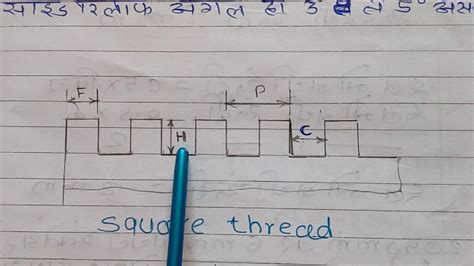 साइड रिलीफ अंगल हो 3° से 5° अंश
F P
H C
square thread